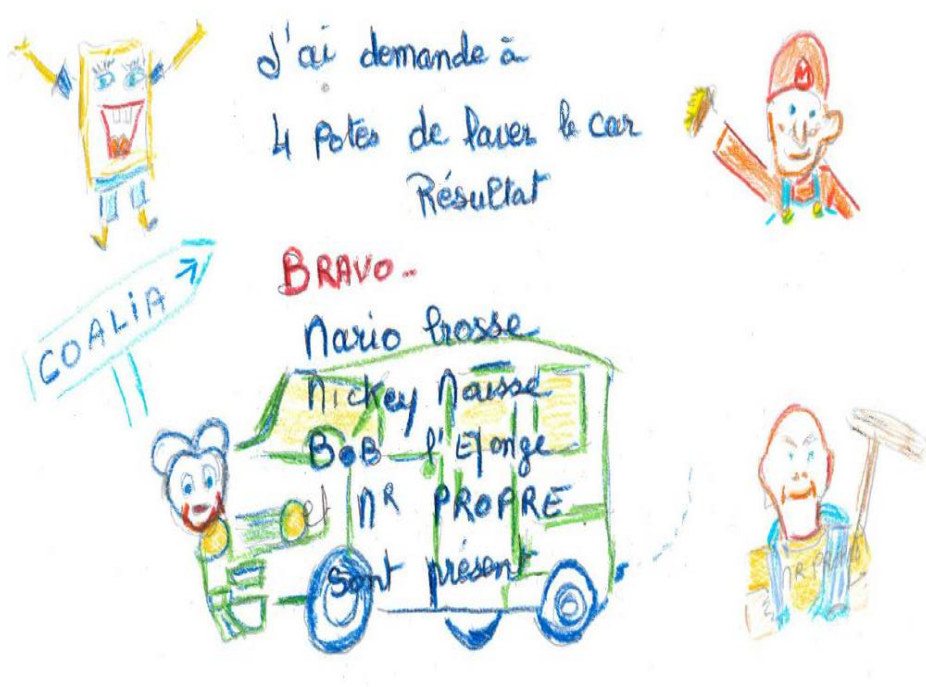 J'ai demande à
4 potes de laver le car
Résultat
BRAVO-
Mario brosse
Mickey Mousse
BOB l'Eponge
et MR PROPRE
sont présent
COALIA
M
MR PROPRE